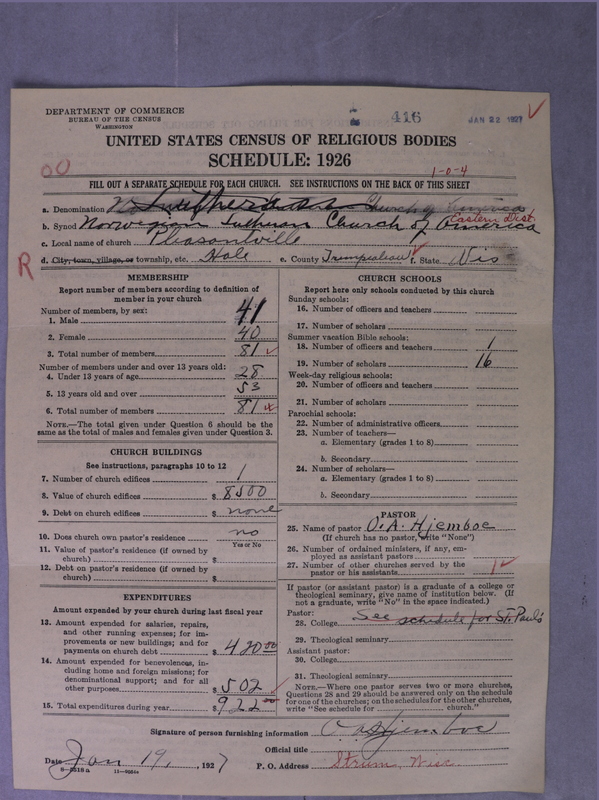 DEPARTMENT OF COMMERCE
BUREAU OF THE CENSUS
WASHINGTON
416
JAN 22 1927
UNITED STATES CENSUS OF RELIGIOUS BODIES
SCHEDULE: 1926
1-0-4
FILL OUT A SEPARATE SCHEDULE FOR EACH CHURCH. SEE INSTRUCTIONS ON THE BACK OF THIS SHEET
a. Denomination Lutheran Church of America
b. Synod Norwegian Lutheran Church of America Eastern Dist.
c. Local name of church Pleasantville
R
d. City, town, village, or township, etc. Hale e. County Trempealeau f. State Wis
MEMBERSHIP
Report number of members according to definition of member in your church
Number of members, by sex:
1. Male 41
2. Female 40
3. Total number of members 81
Number of members under and over 13 years old:
4. Under 13 years of age 28
5. 13 years old and over 53
6. Total number of members 81
NOTE.—The total given under Question 6 should be the same as the total of males and females given under Question 3.
CHURCH BUILDINGS
See instructions, paragraphs 10 to 12
7. Number of church edifices 1
8. Value of church edifices $ 8500
9. Debt on church edifices $ none
10. Does church own pastor's residence? no
Yes or No
11. Value of pastor's residence (if owned by church) $
12. Debt on pastor's residence (if owned by church) $
EXPENDITURES
Amount expended by your church during last fiscal year
13. Amount expended for salaries, repairs, and other running expenses; for improvements or new buildings; and for payments on church debt $ 420 00
14. Amount expended for benevolences, including home and foreign missions; for denominational support; and for all other purposes $ 502
15. Total expenditures during year $ 922 00
CHURCH SCHOOLS
Report here only schools conducted by this church
Sunday schools:
16. Number of officers and teachers
17. Number of scholars
Summer vacation Bible schools:
18. Number of officers and teachers 1
19. Number of scholars 16
Week-day religious schools:
20. Number of officers and teachers
21. Number of scholars
Parochial schools:
22. Number of administrative officers
23. Number of teachers—
a. Elementary (grades 1 to 8)
b. Secondary
24. Number of scholars—
a. Elementary (grades 1 to 8)
b. Secondary
PASTOR
25. Name of pastor O. A. Hjemboe
(If church has no pastor, write "None")
26. Number of ordained ministers, if any, employed as assistant pastors
27. Number of other churches served by the pastor or his assistants 1
If pastor (or assistant pastor) is a graduate of a college or theological seminary, give name of institution below. (If not a graduate, write "No" in the space indicated.)
Pastor:
28. College See schedule for St. Paul's
29. Theological seminary
Assistant pastor:
30. College
31. Theological seminary
NOTE.—Where one pastor serves two or more churches, Questions 28 and 29 should be answered only on the schedule for one of the churches; on the schedules for the other churches, write "See schedule for church."
Signature of person furnishing information O. A. Hjemboe
Official title
Date Jan 19, 1927 P. O. Address Strum, Wisc